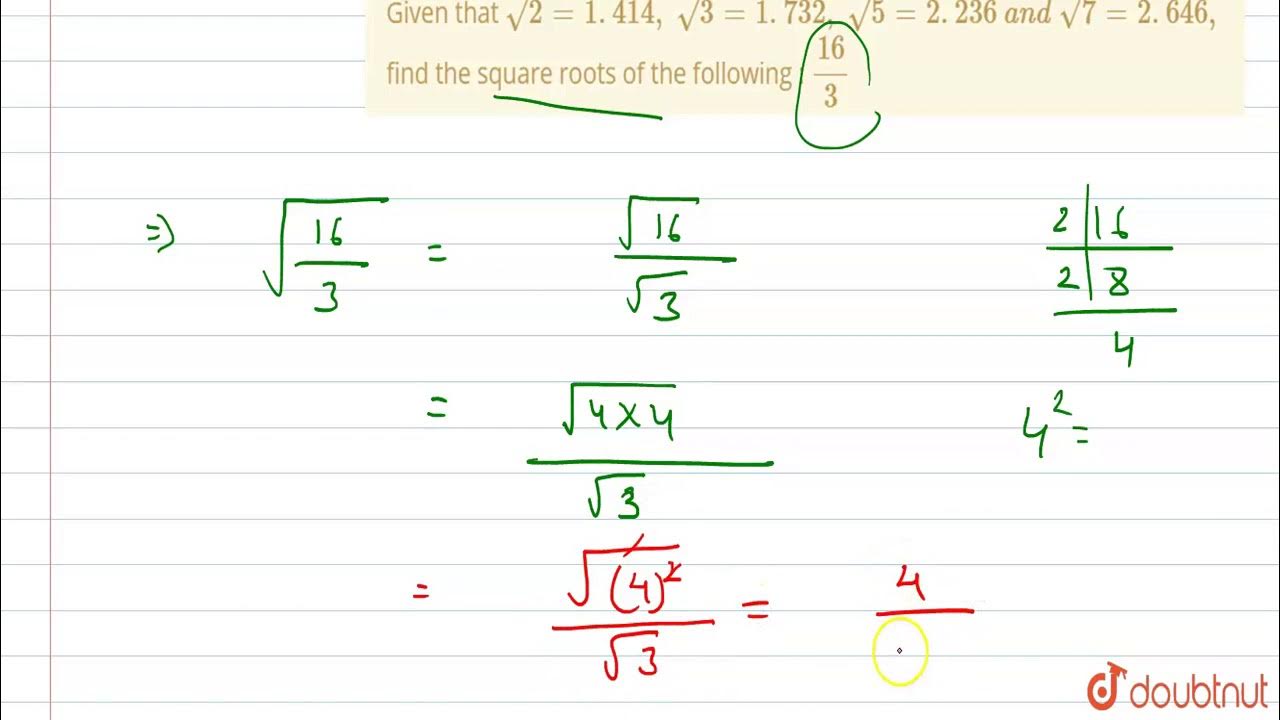 Given that √2 = 1. 414, √3 = 1. 732, √5 = 2. 236 and √7 = 2. 646,
find the square roots of the following : 16/3
⇒ √(16/3) = √16/√3
2|16
2|8
4
= √(4×4)/√3
4² =
= √(4)²/√3 = 4/
doubtnut